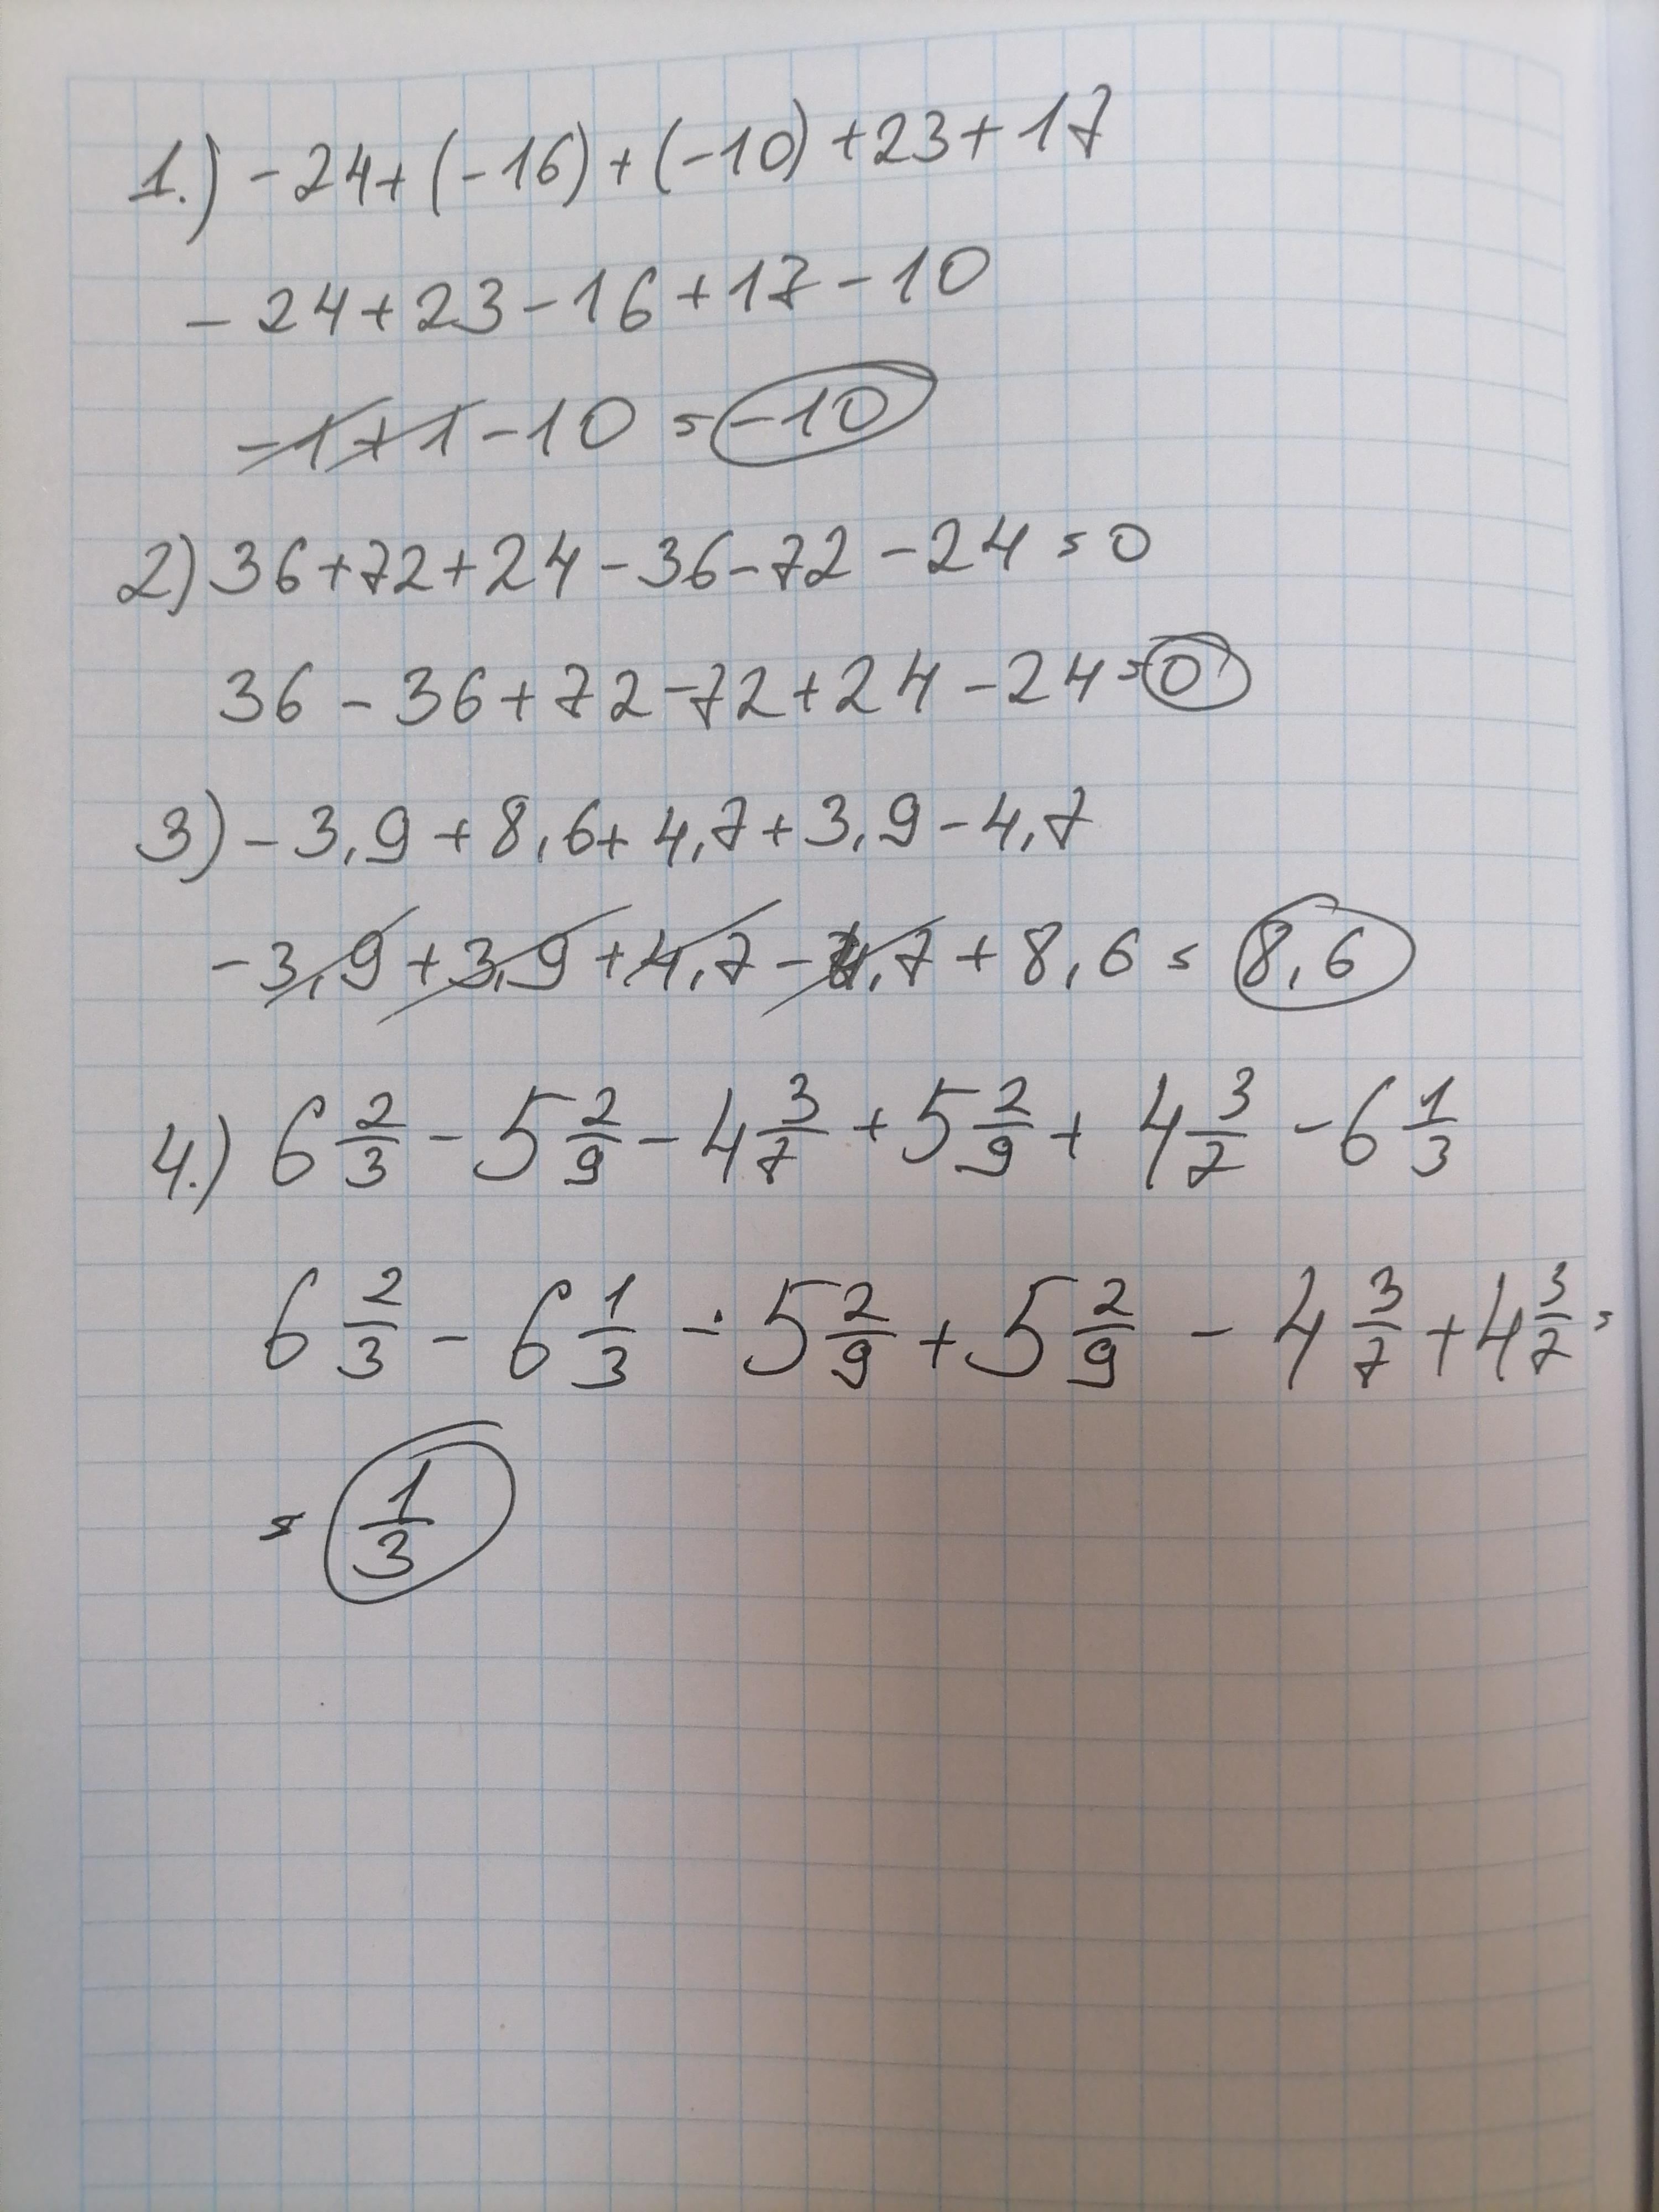 1.) -24+(-16)+(-10)+23+17
-24+23-16+17-10
-1+1-10=-10
2) 36+72+24-36-72-24=0
36-36+72-72+24-24=0
3) -3,9+8,6+4,7+3,9-4,7
-3,9+3,9+4,7-4,7+8,6=8,6
4.) 6 2/3 - 5 2/9 - 4 3/7 + 5 2/9 + 4 3/7 - 6 1/3
6 2/3 - 6 1/3 - 5 2/9 + 5 2/9 - 4 3/7 + 4 3/7 =
= 1/3